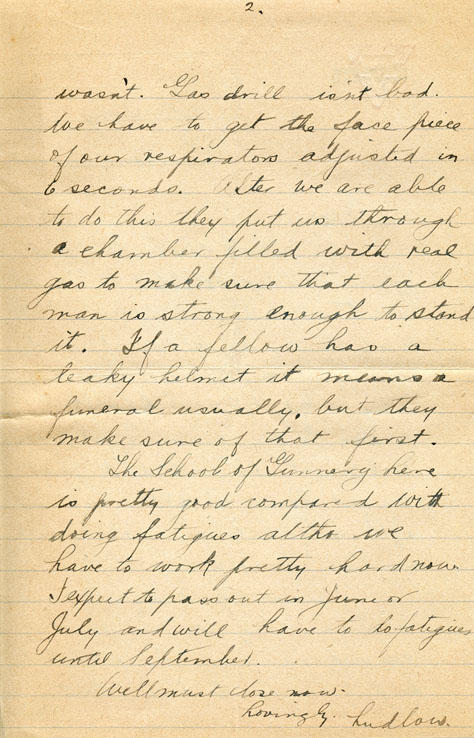 2.
wasn't. Gas drill isn't bad.
We have to get the face piece
of our respirators adjusted in
6 seconds. After we are able
to do this they put us through
a chamber filled with real
gas to make sure that each
man is strong enough to stand
it. If a fellow has a
leaky helmet it means a
funeral usually, but they
make sure of that first.
The School of Gunnery here
is pretty good compared with
doing fatigues altho we
have to work pretty hard now.
I expect to pass out in June or
July and will have to do fatigues
until September.
Well must close now.
Lovingly, Ludlow.